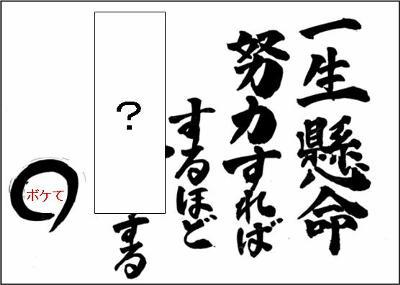 一生懸命
努力すれば
するほど
?
する
ボケて